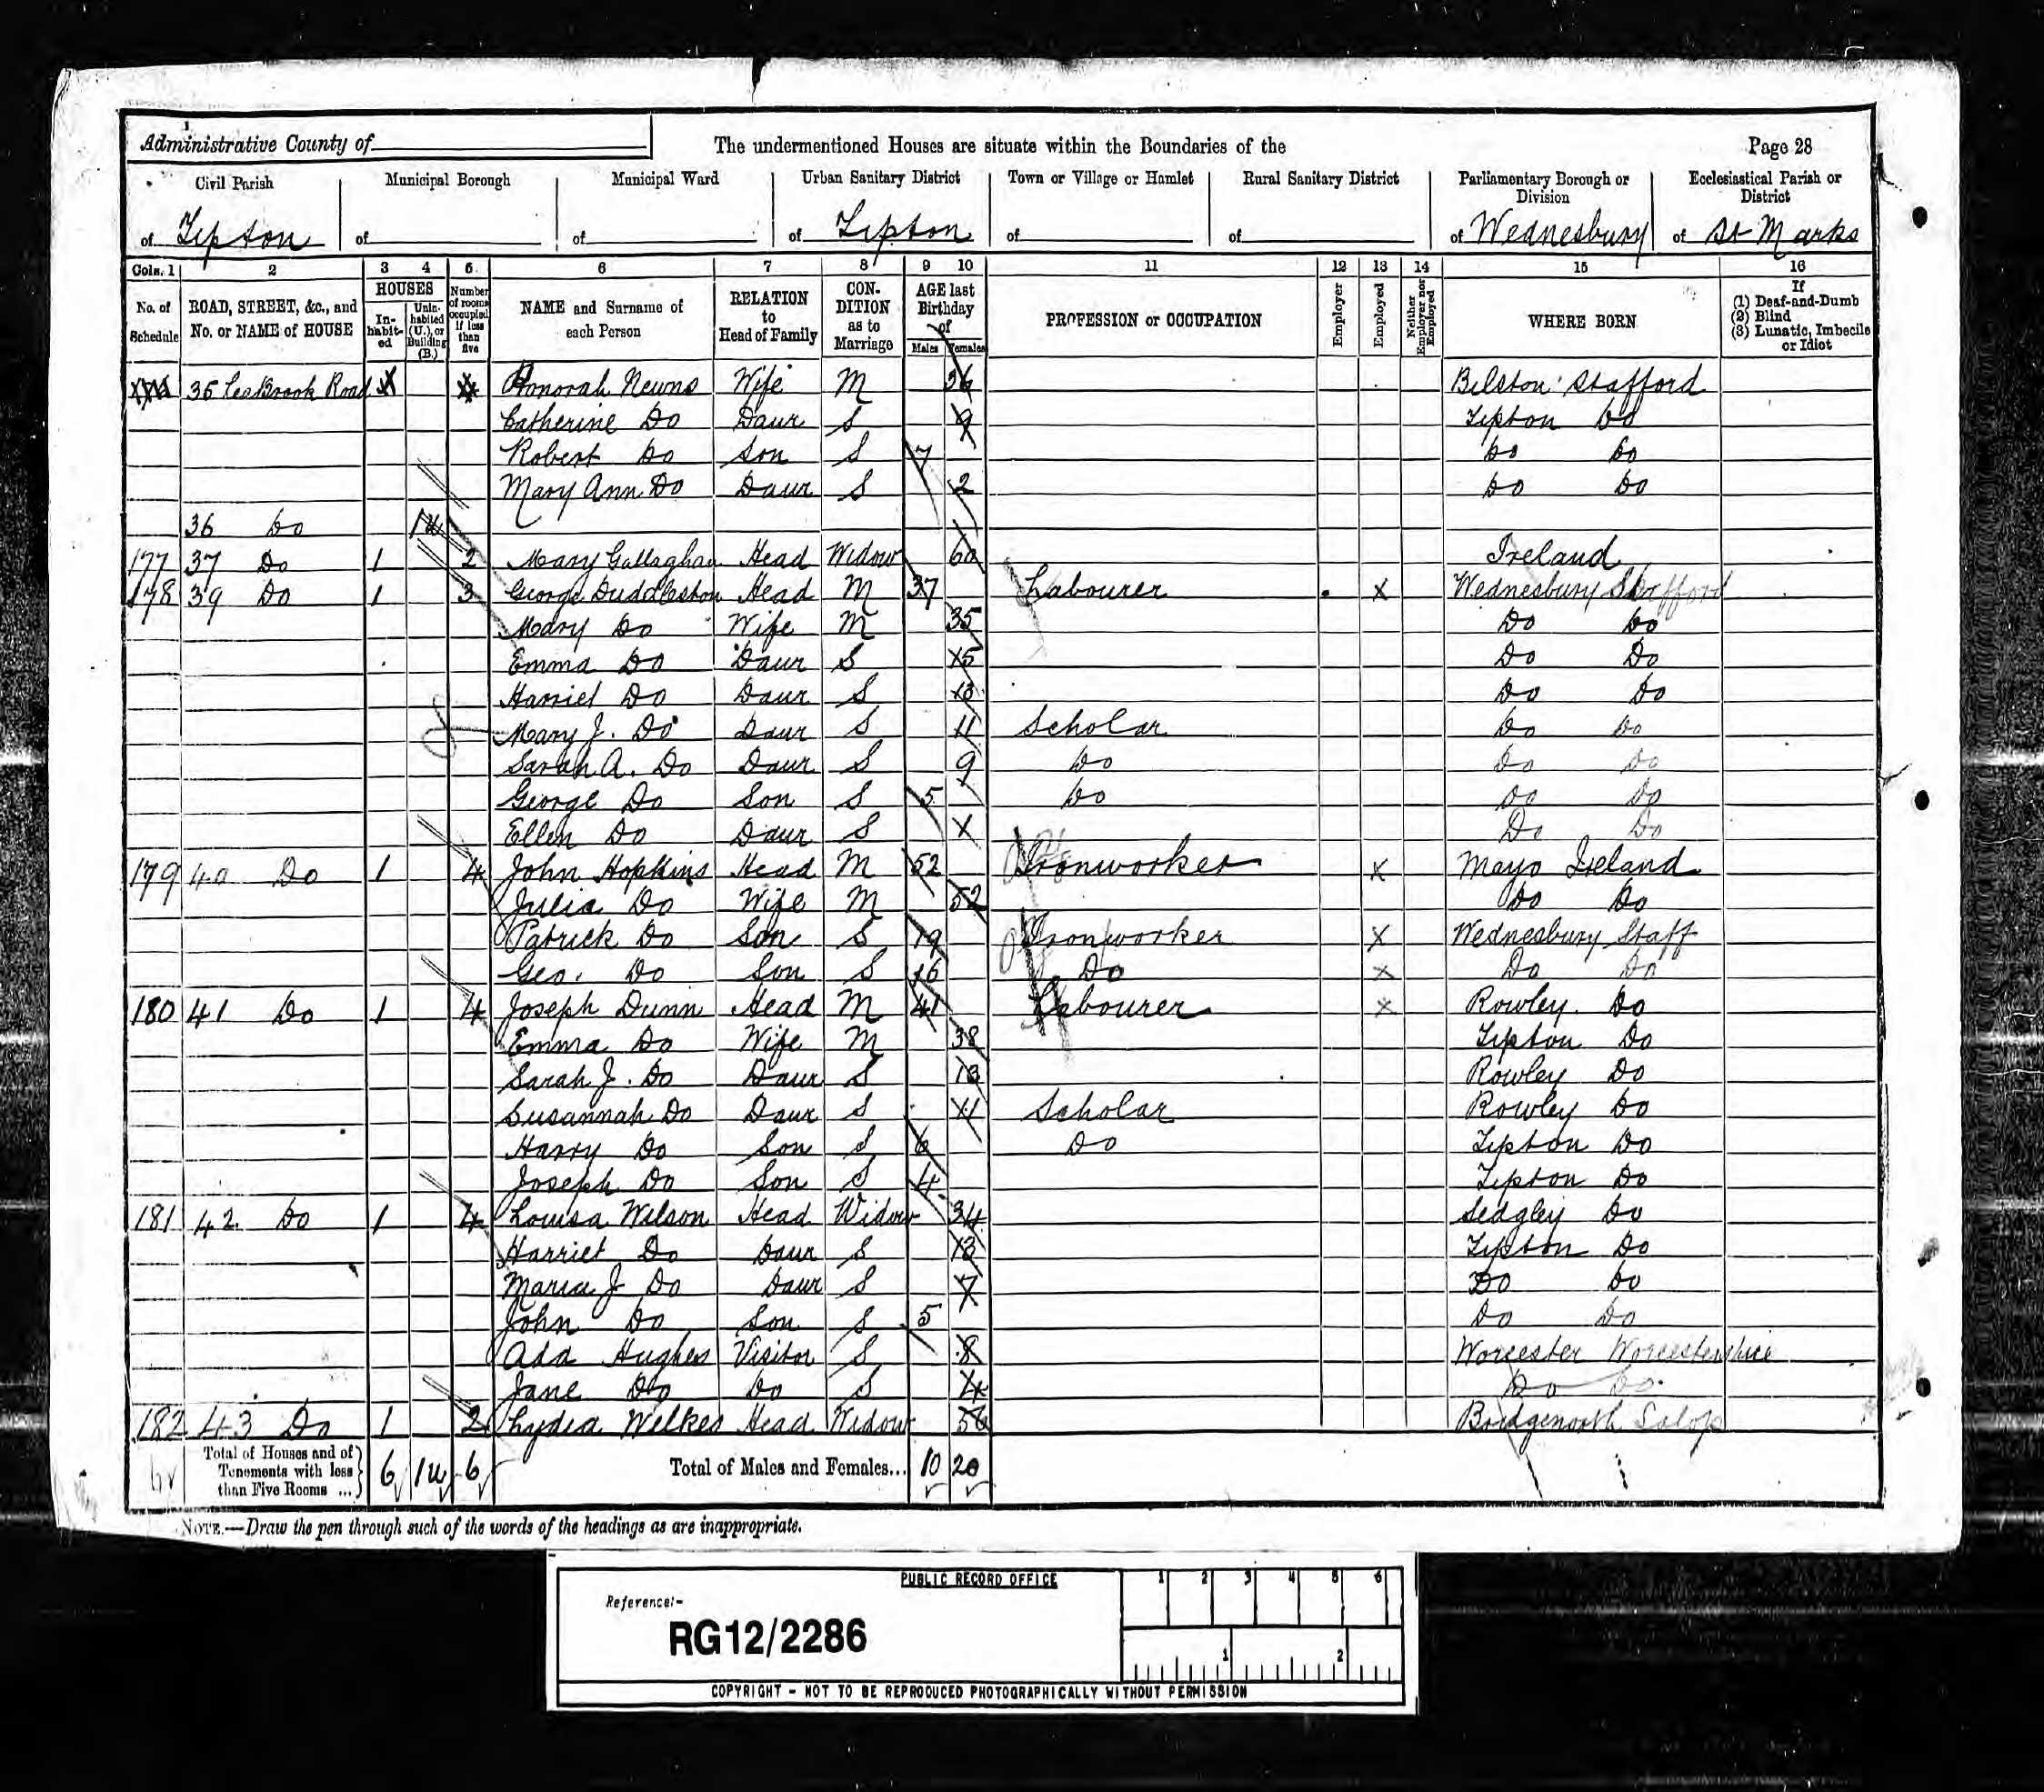 Administrative County of
The undermentioned Houses are situate within the Boundaries of the
Page 28
Civil Parish
Municipal Borough
Municipal Ward
Urban Sanitary District
Town or Village or Hamlet
Rural Sanitary District
Parliamentary Borough or Division
Ecclesiastical Parish or District
of Tipton of of of Tipton of of of Wednesbury of St Marks
Cols. 1 2 3 4 5 6 7 8 9 10 11 12 13 14 15 16
No. of Schedule
ROAD, STREET, &c., and No. or NAME of HOUSE
HOUSES
In-habit-ed
Unin-habited (U.), or Building (B.)
Number of rooms occupied if less than five
NAME and Surname of each Person
RELATION to Head of Family
CON-DITION as to Marriage
AGE last Birthday of
Males Females
PROFESSION or OCCUPATION
Employer
Employed
Neither Employer nor Employed
WHERE BORN
If
(1) Deaf-and-Dumb
(2) Blind
(3) Lunatic, Imbecile or Idiot
35 Road Honorah Newns Wife M 36 Bilston Stafford
Catherine Do Daur S 9 Tipton Do
Robert Do Son S 7 Do Do
Mary Ann Do Daur S 2 Do Do
36 Do 1u
177 37 Do 1 2 Mary Gallaghan Head Widow 60 Ireland
178 39 Do 1 3 George Duddleston Head M 37 Labourer X Wednesbury Stafford
Mary Do Wife M 35 Do Do
Emma Do Daur S 15 Do Do
Harriet Do Daur S 13 Do Do
Mary J. Do Daur S 11 Scholar Do Do
Sarah A. Do Daur S 9 Do Do Do
George Do Son S 5 Do Do Do
Ellen Do Daur S Do Do
179 40 Do 1 4 John Hopkins Head M 52 Ironworker X Mayo Ireland
Julia Do Wife M 52 Do Do
Patrick Do Son S 19 Ironworker X Wednesbury Staff
Geo. Do Son S 16 Do X Do Do
180 41 Do 1 4 Joseph Dunn Head M 41 Labourer X Rowley Do
Emma Do Wife M 38 Tipton Do
Sarah J. Do Daur S 13 Rowley Do
Susannah Do Daur S 11 Scholar Rowley Do
Harry Do Son S 6 Do Tipton Do
Joseph Do Son S 4 Tipton Do
181 42 Do 1 4 Louisa Wilson Head Widow 34 Sedgley Do
Harriet Do Daur S 13 Tipton Do
Maria J Do Daur S 7 Do Do
John Do Son S 5 Do Do
Ada Hughes Visitor S 8 Worcester Worcestershire
Jane Do Do S 4 Do Do
182 43 Do 1 2 Lydia Wilkes Head Widow 56 Bridgenorth Salop
Total of Houses and of Tenements with less than Five Rooms ... 6 1u 6
Total of Males and Females... 10 20
NOTE.—Draw the pen through such of the words of the headings as are inappropriate.
PUBLIC RECORD OFFICE
Reference:-
RG12/2286
1 2 3 4 5 6
1 2
COPYRIGHT - NOT TO BE REPRODUCED PHOTOGRAPHICALLY WITHOUT PERMISSION